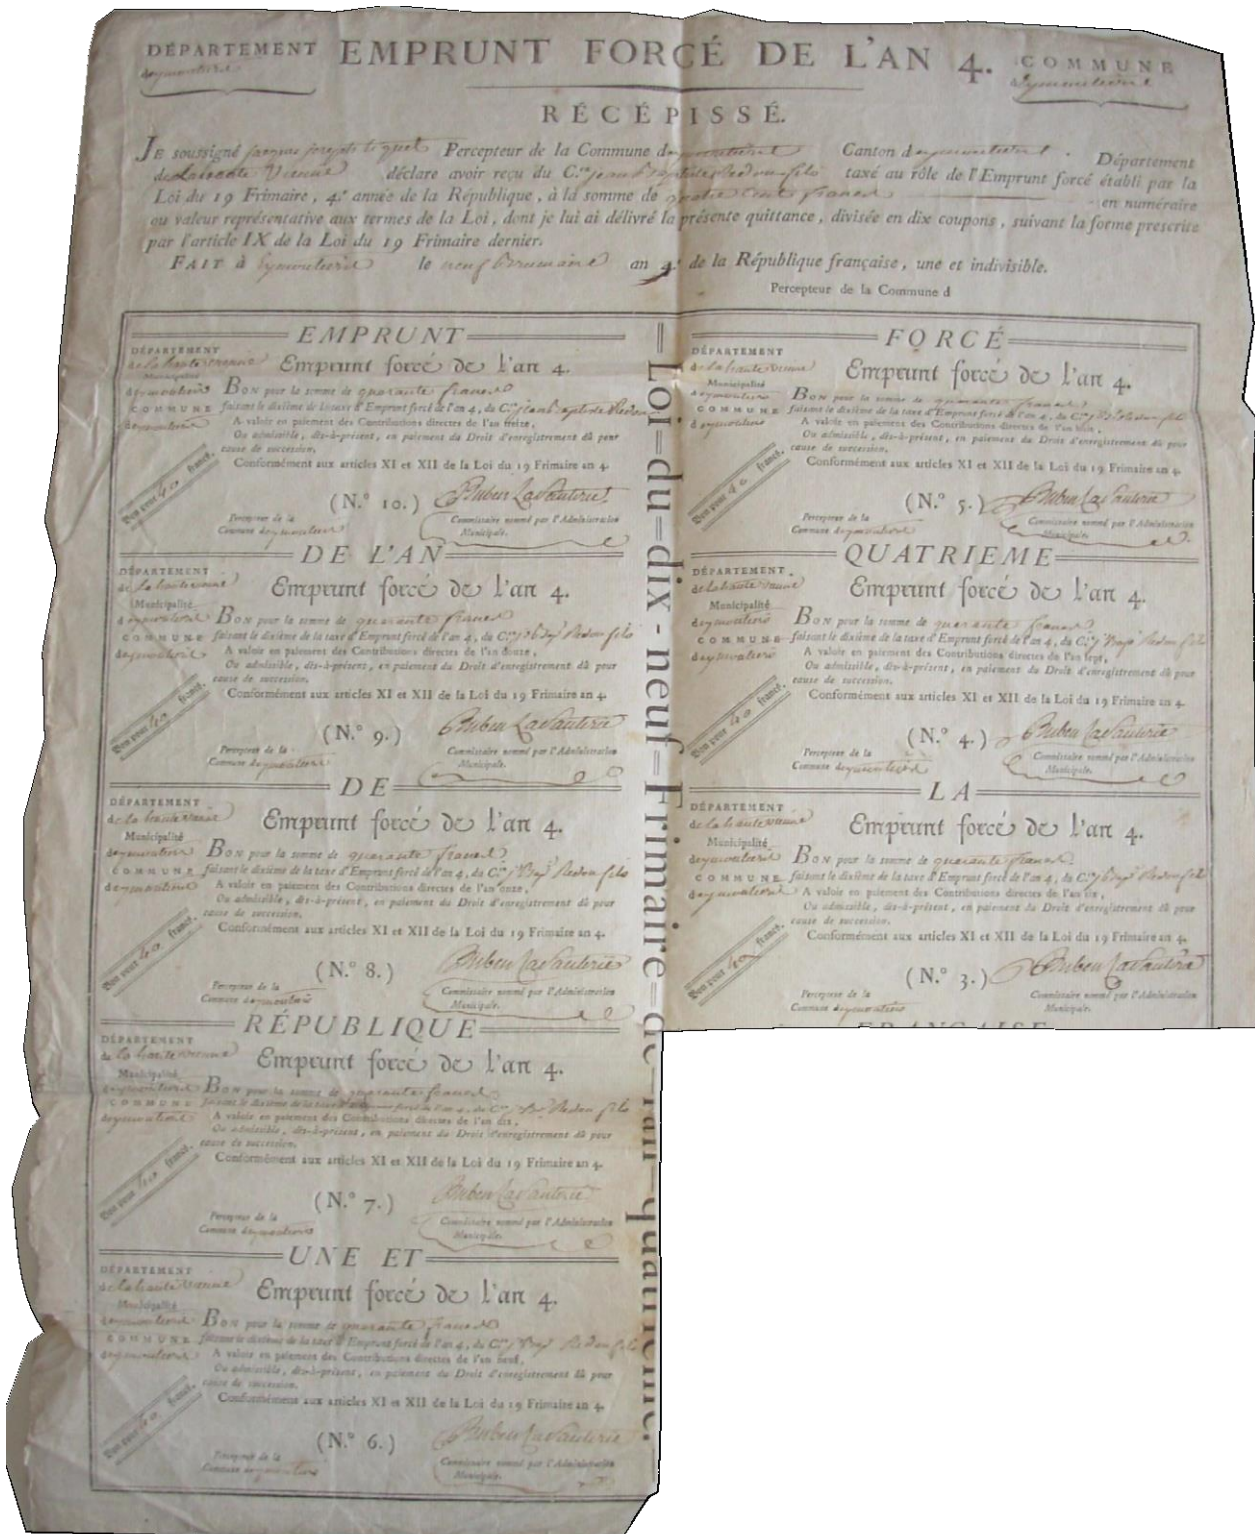 DÉPARTEMENT
EMPRUNT FORCÉ DE L'AN 4.
COMMUNE
deymoutiers
Deymoutiers
RÉCÉPISSÉ.
JE soussigné jacques joseph Percepteur de la Commune deymoutiers Canton deymoutiers. Département
de La haute Vienne déclare avoir reçu du C.en jean Baptiste Redon fils taxé au rôle de l'Emprunt forcé établi par la
Loi du 19 Frimaire, 4.e année de la République, à la somme de quatre cent francs en numéraire
ou valeur représentative aux termes de la Loi, dont je lui ai délivré la présente quittance, divisée en dix coupons, suivant la forme prescrite
par l'article IX de la Loi du 19 Frimaire dernier.
FAIT à Eymoutiers le neuf Brumaire an 4.e de la République française, une et indivisible.
Percepteur de la Commune d
EMPRUNT
DÉPARTEMENT
de la haute vienne
Emprunt forcé de l'an 4.
Municipalité
deymoutiers
BON pour la somme de quarante francs
COMMUNE
faisant le dixième de la taxe d'Emprunt forcé de l'an 4, du C.en jean Baptiste Redon
deymoutiers
A valoir en paiement des Contributions directes de l'an treize,
Ou admissible, dès-à-présent, en paiement du Droit d'enregistrement dû pour
cause de succession,
Conformément aux articles XI et XII de la Loi du 19 Frimaire an 4.
Bon pour 40 francs.
(N.° 10.)
Percepteur de la
Commune deymoutiers
Commissaire nommé par l'Administration
Municipale.
DE L'AN
DÉPARTEMENT
de la haute vienne
Emprunt forcé de l'an 4.
Municipalité
deymoutiers
BON pour la somme de quarante francs
COMMUNE
faisant le dixième de la taxe d'Emprunt forcé de l'an 4, du C.en J Bap.te Redon fils
deymoutiers
A valoir en paiement des Contributions directes de l'an douze,
Ou admissible, dès-à-présent, en paiement du Droit d'enregistrement dû pour
cause de succession.
Conformément aux articles XI et XII de la Loi du 19 Frimaire an 4.
Bon pour 40 francs.
(N.° 9.)
Percepteur de la
Commune deymoutiers
Commissaire nommé par l'Administration
Municipale.
DE
DÉPARTEMENT
de la haute vienne
Emprunt forcé de l'an 4.
Municipalité
deymoutiers
BON pour la somme de quarante francs
COMMUNE
faisant le dixième de la taxe d'Emprunt forcé de l'an 4, du C.en J Bap.te Redon fils
deymoutiers
A valoir en paiement des Contributions directes de l'an onze,
Ou admissible, dès-à-présent, en paiement du Droit d'enregistrement dû pour
cause de succession.
Conformément aux articles XI et XII de la Loi du 19 Frimaire an 4.
Bon pour 40 francs.
(N.° 8.)
Percepteur de la
Commune deymoutiers
Commissaire nommé par l'Administration
Municipale.
RÉPUBLIQUE
DÉPARTEMENT
de la haute vienne
Emprunt forcé de l'an 4.
Municipalité
deymoutiers
BON pour la somme de quarante francs
COMMUNE
faisant le dixième de la taxe d'Emprunt forcé de l'an 4, du C.en J Bap.te Redon fils
deymoutiers
A valoir en paiement des Contributions directes de l'an dix,
Ou admissible, dès-à-présent, en paiement du Droit d'enregistrement dû pour
cause de succession.
Conformément aux articles XI et XII de la Loi du 19 Frimaire an 4.
Bon pour 40 francs.
(N.° 7.)
Percepteur de la
Commune deymoutiers
Commissaire nommé par l'Administration
Municipale.
UNE ET
DÉPARTEMENT
de la haute vienne
Emprunt forcé de l'an 4.
Municipalité
deymoutiers
BON pour la somme de quarante francs
COMMUNE
faisant le dixième de la taxe d'Emprunt forcé de l'an 4, du C.en J Bap.te Redon fils
deymoutiers
A valoir en paiement des Contributions directes de l'an neuf,
Ou admissible, dès-à-présent, en paiement du Droit d'enregistrement dû pour
cause de succession.
Conformément aux articles XI et XII de la Loi du 19 Frimaire an 4.
Bon pour 40 francs.
(N.° 6.)
Percepteur de la
Commune deymoutiers
Commissaire nommé par l'Administration
Municipale.
Loi du dix-neuf Frimaire de l'an quatrieme.
FORCÉ
DÉPARTEMENT
de la haute vienne
Emprunt forcé de l'an 4.
Municipalité
deymoutiers
BON pour la somme de quarante francs
COMMUNE
faisant le dixième de la taxe d'Emprunt forcé de l'an 4, du C.en J Redon fils
deymoutiers
A valoir en paiement des Contributions directes de l'an huit,
Ou admissible, dès-à-présent, en paiement du Droit d'enregistrement dû pour
cause de succession,
Conformément aux articles XI et XII de la Loi du 19 Frimaire an 4.
Bon pour 40 francs.
(N.° 5.)
Percepteur de la
Commune deymoutiers
Commissaire nommé par l'Administration
Municipale.
QUATRIEME
DÉPARTEMENT
de la haute vienne
Emprunt forcé de l'an 4.
Municipalité
deymoutiers
BON pour la somme de quarante francs
COMMUNE
faisant le dixième de la taxe d'Emprunt forcé de l'an 4, du C.en J Bap.te Redon fils
deymoutiers
A valoir en paiement des Contributions directes de l'an sept,
Ou admissible, dès-à-présent, en paiement du Droit d'enregistrement dû pour
cause de succession.
Conformément aux articles XI et XII de la Loi du 19 Frimaire an 4.
Bon pour 40 francs.
(N.° 4.)
Percepteur de la
Commune deymoutiers
Commissaire nommé par l'Administration
Municipale.
LA
DÉPARTEMENT
de la haute vienne
Emprunt forcé de l'an 4.
Municipalité
deymoutiers
BON pour la somme de quarante francs
COMMUNE
faisant le dixième de la taxe d'Emprunt forcé de l'an 4, du C.en J Bap.te Redon fils
deymoutiers
A valoir en paiement des Contributions directes de l'an six,
Ou admissible, dès-à-présent, en paiement du Droit d'enregistrement dû pour
cause de succession.
Conformément aux articles XI et XII de la Loi du 19 Frimaire an 4.
Bon pour 40 francs.
(N.° 3.)
Percepteur de la
Commune deymoutiers
Commissaire nommé par l'Administration
Municipale.
FRANÇAISE